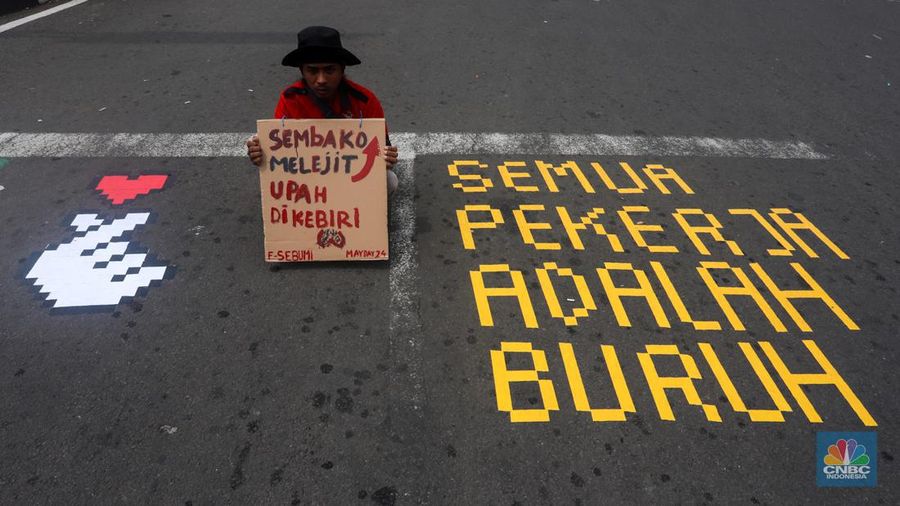 SEMBAKO
MELEJIT
UPAH
DIKEBIRI
F-SEBUMI MAYDAY24
SEMUA
PEKERJA
ADALAH
BURUH
CNBC
INDONESIA